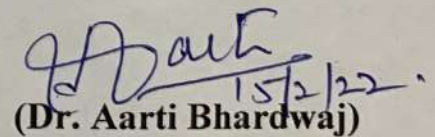 Aarti
15/2/22.
(Dr. Aarti Bhardwaj)